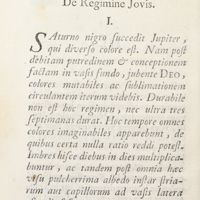 De Regimine Jovis.
I.
SAturno nigro succedit Jupiter,
qui diverso colore est. Nam post
debitam putredinem & conceptionem
factam in vasis fundo, jubente DEO,
colores mutabiles ac sublimationem
circulantem iterum videbis. Durabile
non est hoc regimen, nec ultra tres
septimanas durat. Hoc tempore omnes
colores imaginabiles apparebunt, de
quibus certa nulla ratio reddi potest.
Imbres hisce diebus in dies multiplica-
buntur, ac tandem post omnia hæc
visu pulcherrima albedo instar striæ-
rum aut capillorum ad vasis latera